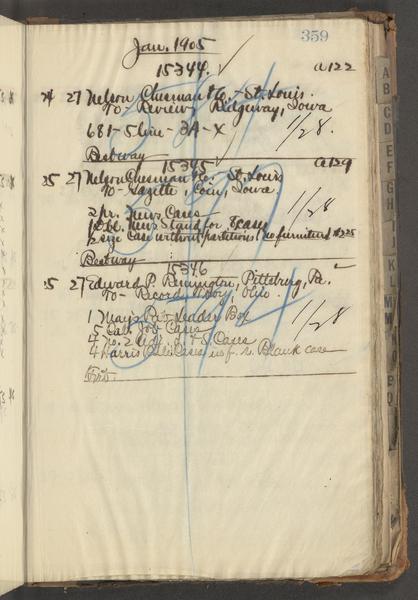 359
Jan. 1905
15344. a122
24 27 Nelson Chesman & Co. - St. Louis.
To - Review, Ridgeway, Iowa
681 - 5 line - 3A - X 1/28.
Bestway
15345 a129
25 27 Nelson Chesman Co. St. Louis
To - Gazette, Coin, Iowa.
2 pr. News Cases 1/28
1 Dbl. News Stand for
2 size Case without partitions no furniture
Bestway
15346
25 27 Edward P. Pittsburg, Pa.
To - Record, Ohio.
1 Ladder Box 1/28
5 Cab. Job Cases
4 No. 2 Cases
4 Harris Cases no f. n. Blank case
Frt.
A
B
C
D
E
F
G
H
I
K
L
M